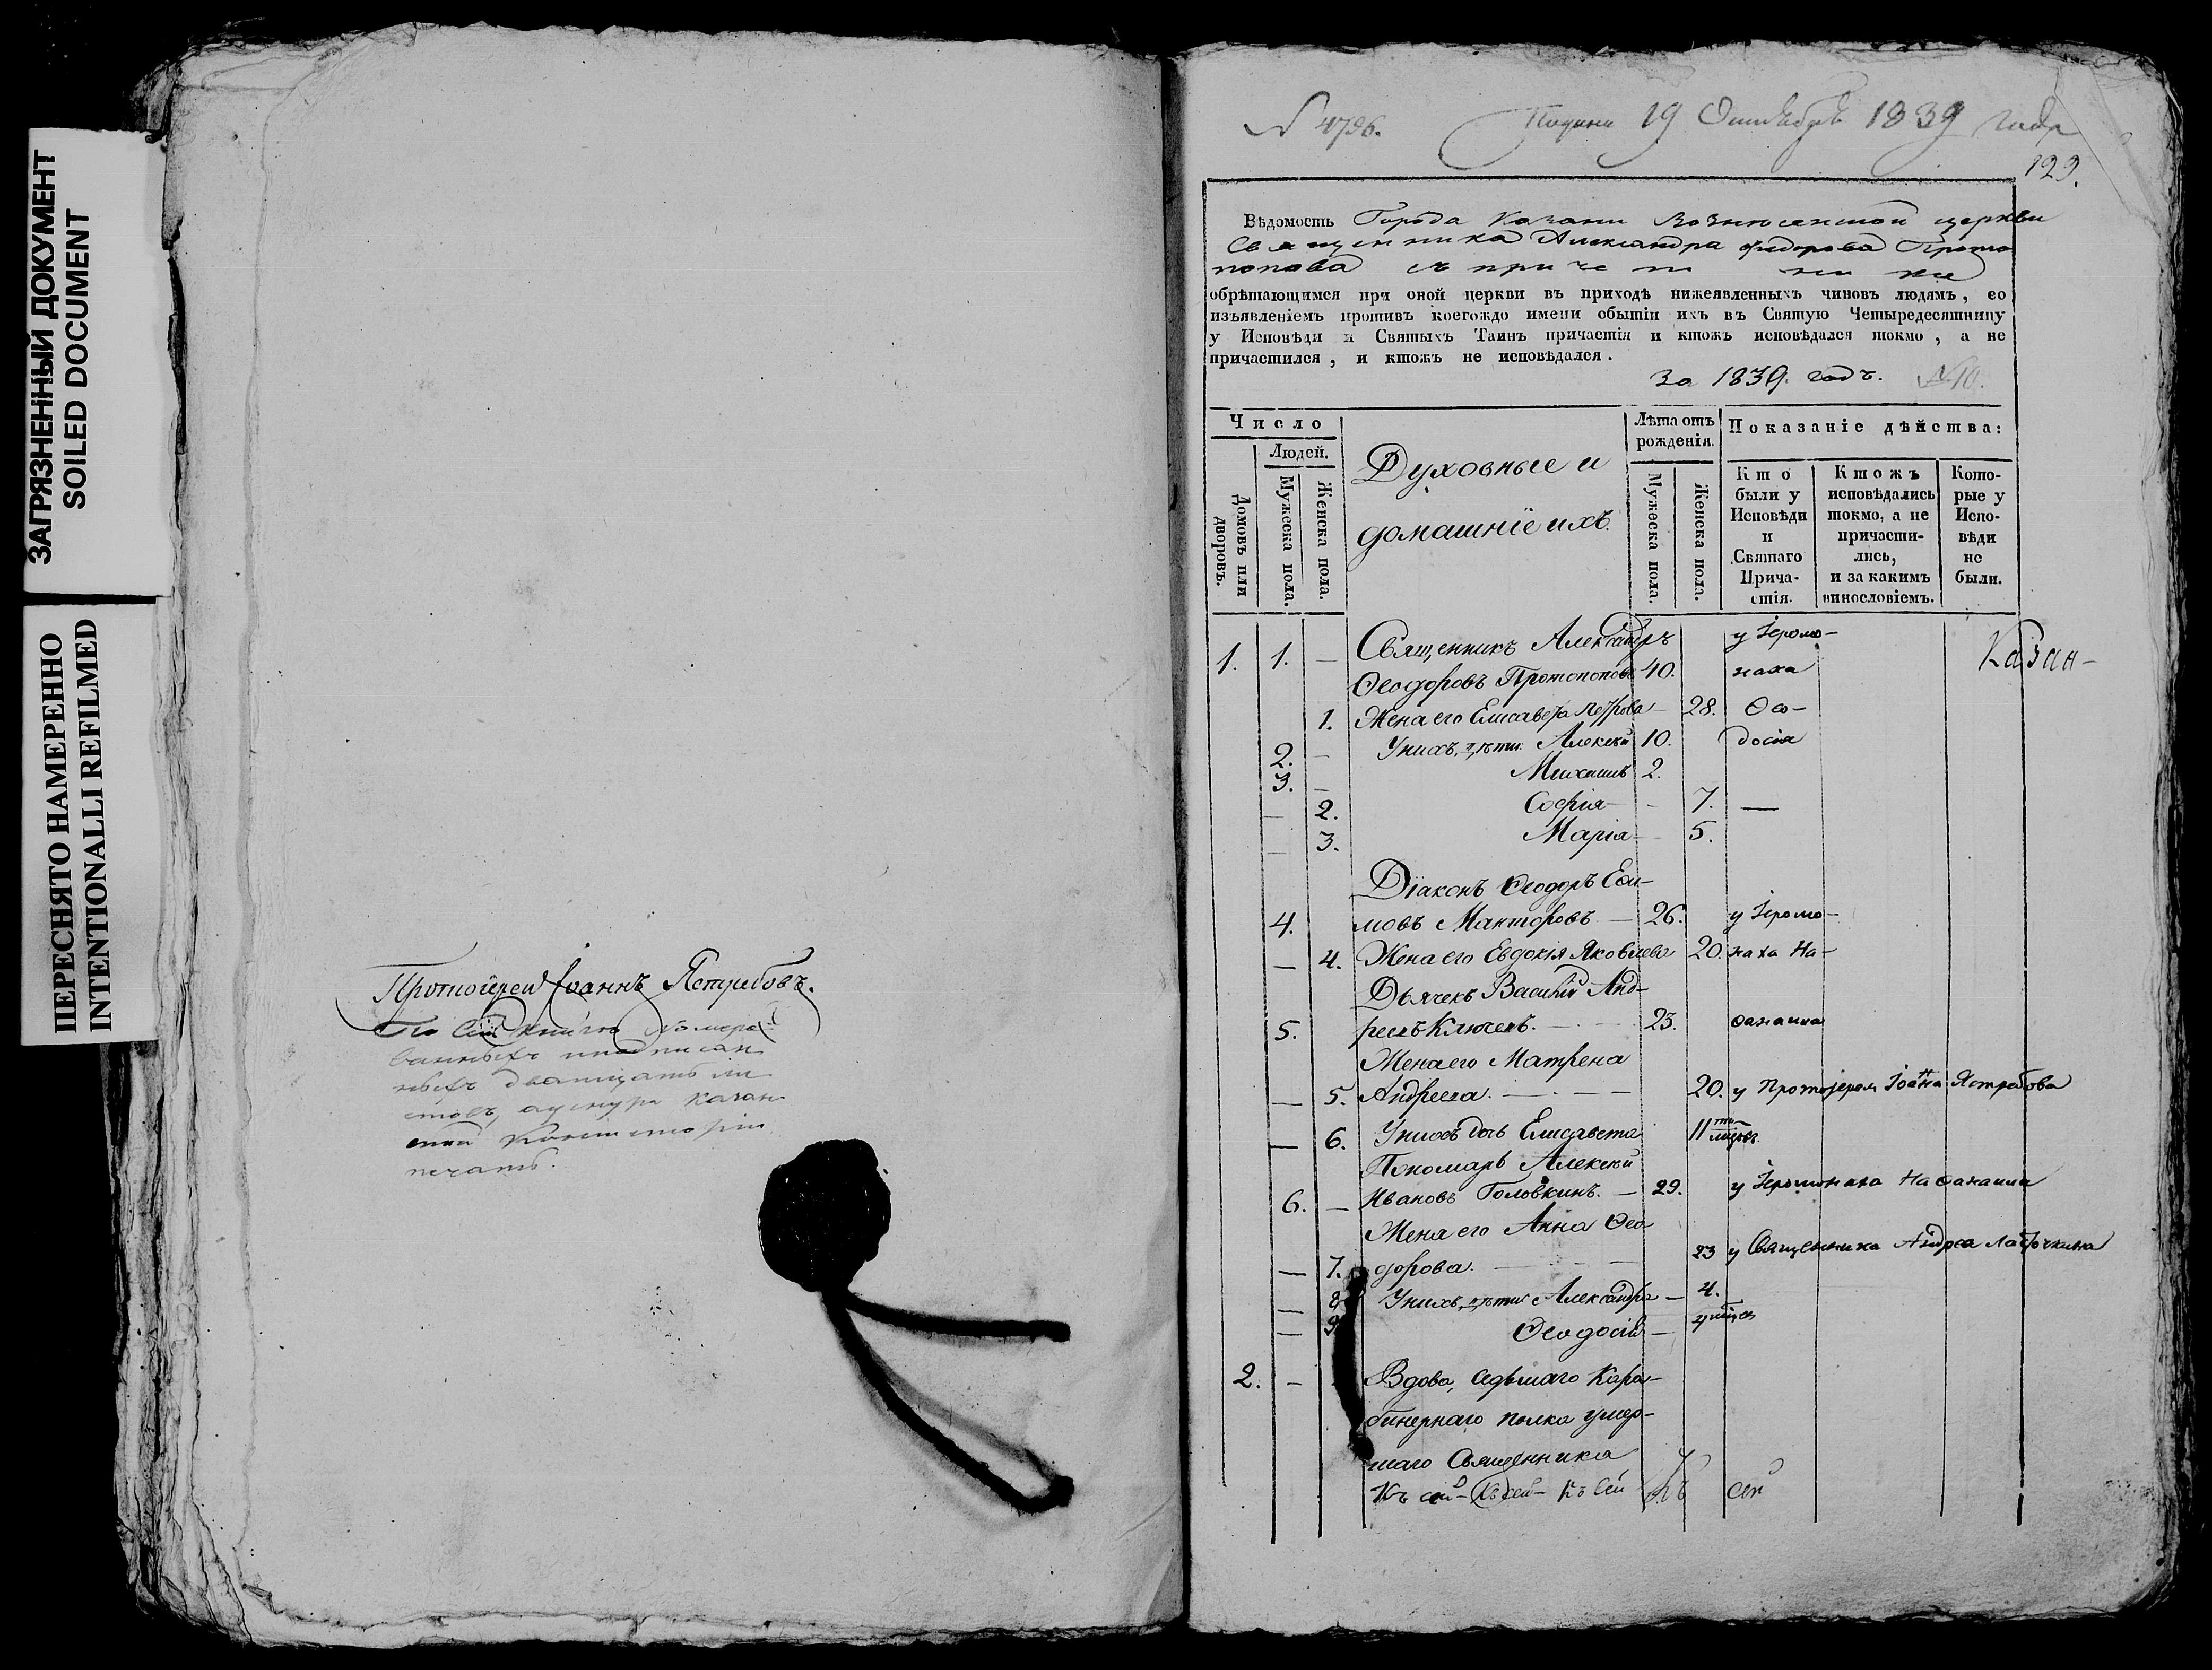 ЗАГРЯЗНЕННЫЙ ДОКУМЕНТ
SOILED DOCUMENT
ПЕРЕСНЯТО НАМЕРЕННО
INTENTIONALLI REFILMED
Протоіерей Іоаннъ Ястребовъ.
По сей книгѣ номеро-
ванныхъ и подписан
ныхъ дватцать ли
стовъ, а у шнура Казан
ской Консисторіи
печать.
N 4796. Подана 19 Октября 1839 года
129.
Вѣдомость Города Казани Вознесенской церкви
Священника Александра Федорова Прото
попова съ причетники
обрѣтающимся при оной церкви въ приходѣ нижеявленныхъ чиновъ людямъ, со
изъявленіемъ противъ коегождо имени обытіи ихъ въ Святую Четыредесятницу
у Исповѣди и Святыхъ Таинъ причастія и ктожъ исповѣдался токмо, а не
причастился, и ктожъ не исповѣдался.
За 1839. годъ. №10.
Число
Людей.
Домовъ или дворовъ.
Мужеска пола.
Женска пола.
Духовные и
домашніе ихъ.
Лѣта отъ рожденія.
Мужеска пола.
Женска пола.
Показаніе дѣйства:
Кто были у Исповѣди и Святаго Прича-стія.
Ктожъ исповѣдались токмо, а не причасти-лись, и за какимъ винословіемъ.
Кото-рые у Испо-вѣди не были.
1. 1. — Священникъ Александръ у Іеромо-
Ѳеодоровъ Протопоповъ 40. наха
Казан-
1. Жена его Елисавета Петрова 28. Ѳео-
2. — У нихъ дѣти Алексѣй 10. досія
3. — Михаилъ 2.
— 2. Софія — 7. —
— 3. Марія — 5.
Діаконъ Ѳеодоръ Ефи-
4. мовъ Манторовъ — 26. у Іеромо-
— 4. Жена его Евдокія Яковлева 20. наха На-
Дьячекъ Василій Анд-
5. реевъ Ключевъ. — 23. ѳанаила
Жена его Матрена
— 5. Андреева. — 20. у Протоіерея Іоанна Ястребова
— 6. У нихъ дочь Елисавета 11 ти мѣсяц.
Пономарь Алексѣй
6. — Ивановъ Головкинъ. — 29. у Іеромонаха Наѳанаила
Жена его Анна Ѳео-
— 7. дорова. — 23 у Священника Андрея
— 8 У нихъ дѣти Александра — 4.
— 9 Ѳеодосія —
2. — Вдова, седьмаго Кара-
бинернаго полка умер-
шаго Священника
Къ сей Къ сей Къ сей Къ сей